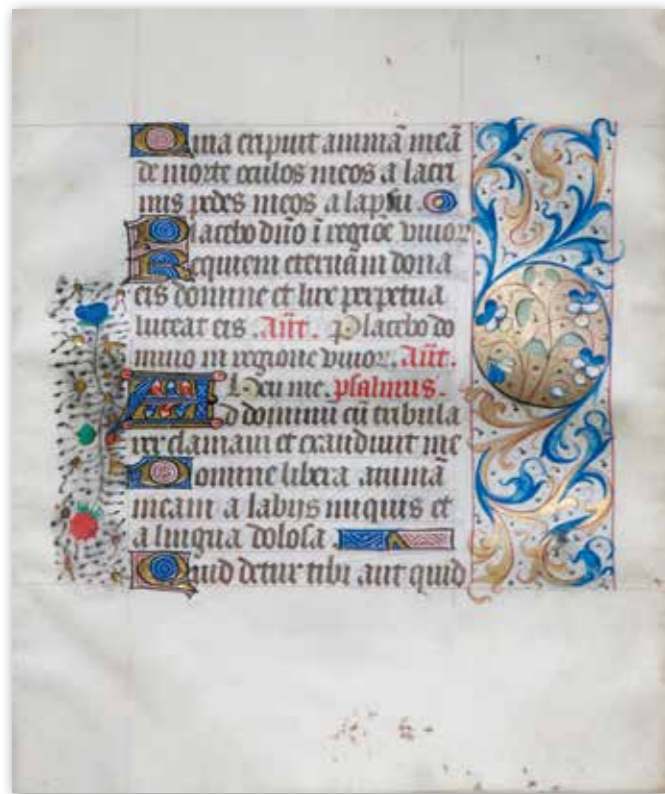 Quia eripuit animā meā
de morte oculos meos a lacri
mis pedes meos a lapsu .
Placebo dño ī regiōe vivor
Requiem eternam dona
eis domine et lux perpetua
luceat eis . Añt. Placebo do
mino in regione vivor. Añt.
Heu me. psalmus.
Ad dominū cū tribula
rer clamavi et exaudivit me
Domine libera animā
meam a labijs iniquis et
a lingua dolosa .
Quid detur tibi aut quid